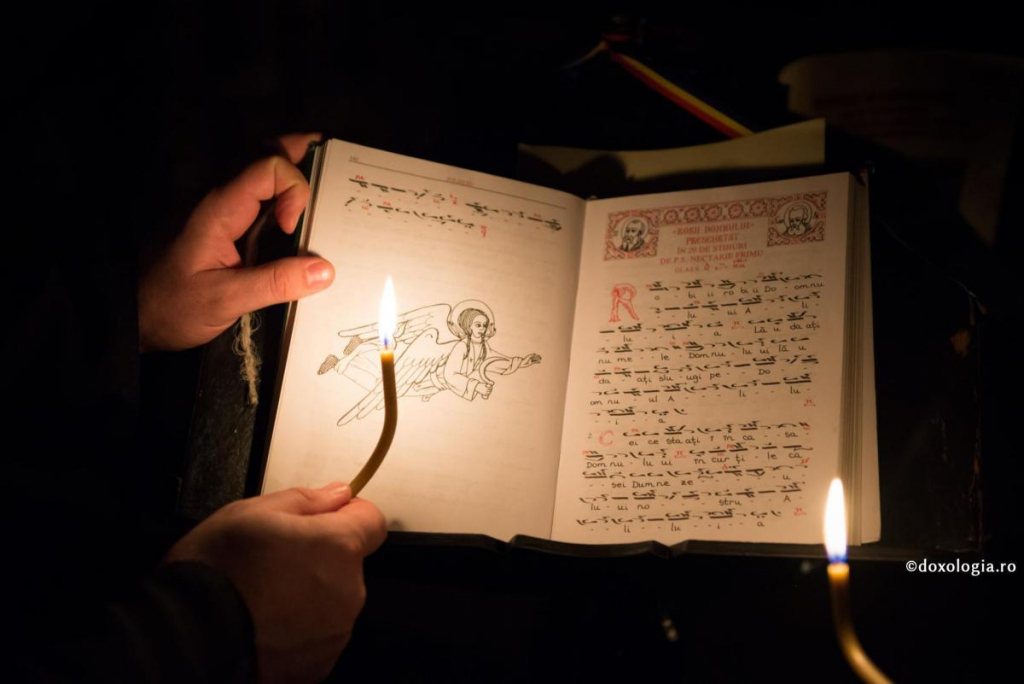 «ROBII DOMNULUI»
PRESCURTAT
ÎN 20 DE STIHURI
DE P.S. NECTARIE FRIMU
GLASUL
R
o bi ii ro bi ii Do omnu
lu ui A li
lu i a Lă u da ați
nu me le Domnu lu ui lă u
da ați slu ugi pe Do
om nu ul A li lu
i a
2 C ei ce sta ați î în ca sa
Dom nu lu ui în cur ți le ca
sei Dum ne ze u
lu ui no stru A
li lu i a
©doxologia.ro